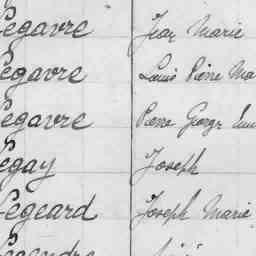 Legavre Jean Marie
Legavre Louis Pierre Ma
Legavre Pierre George Em
Legay Joseph
Legeard Joseph Marie
Legendre